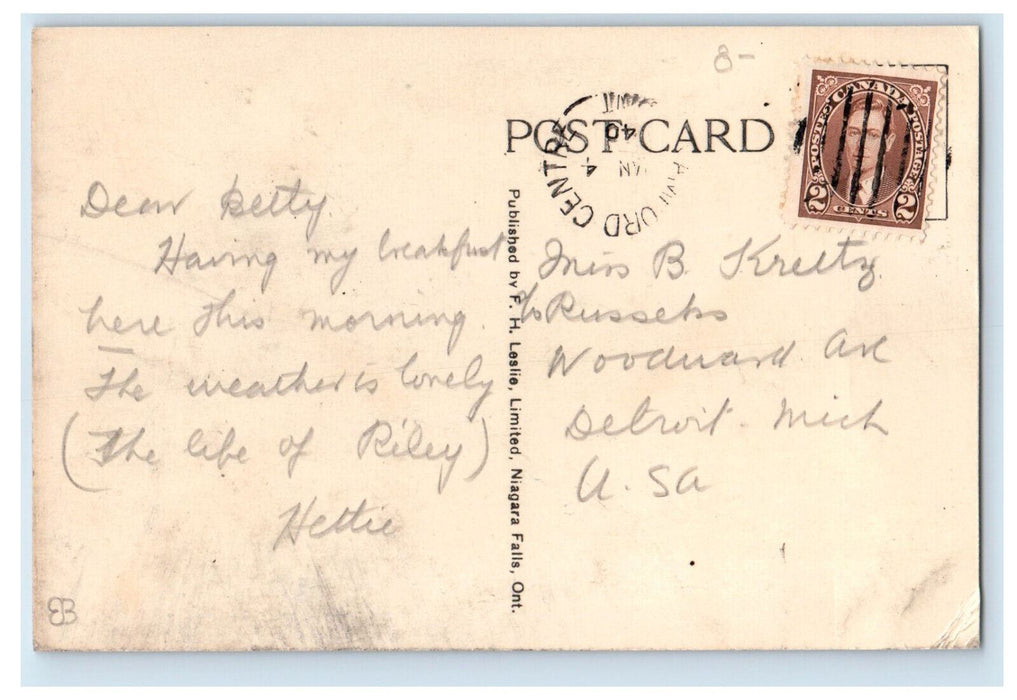 8-
POST CARD
CANADA
POSTES POSTAGE
2 CENTS 2
FORD CENTRA
4
40
Dear Betty
Having my breakfast
here this morning.
The weather is lovely
(The life of Riley)
Hettie
Published by F. H. Leslie, Limited, Niagara Falls, Ont.
Miss B Kreitz
c/o Russeks
Woodward Ave
Detroit. Mich
U. S a